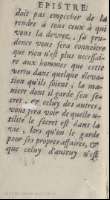 EPISTRE
doit pas empescher de la
rendre à tous ceux à qui
vous la devrez, sa pru-
dence vous fera connoistre
que rien n'est plus necessai-
re aux hommes que cette
vertu dans quelque elevation
qu'ils soient, la ma-
niere dont il garde son se-
cret, et celuy des autres,
vous fera voir de quelle u-
tilité le secret est dans la
vie, lors qu'on le garde
pour ses propres affaires, et
que celuy d'autruy n'est